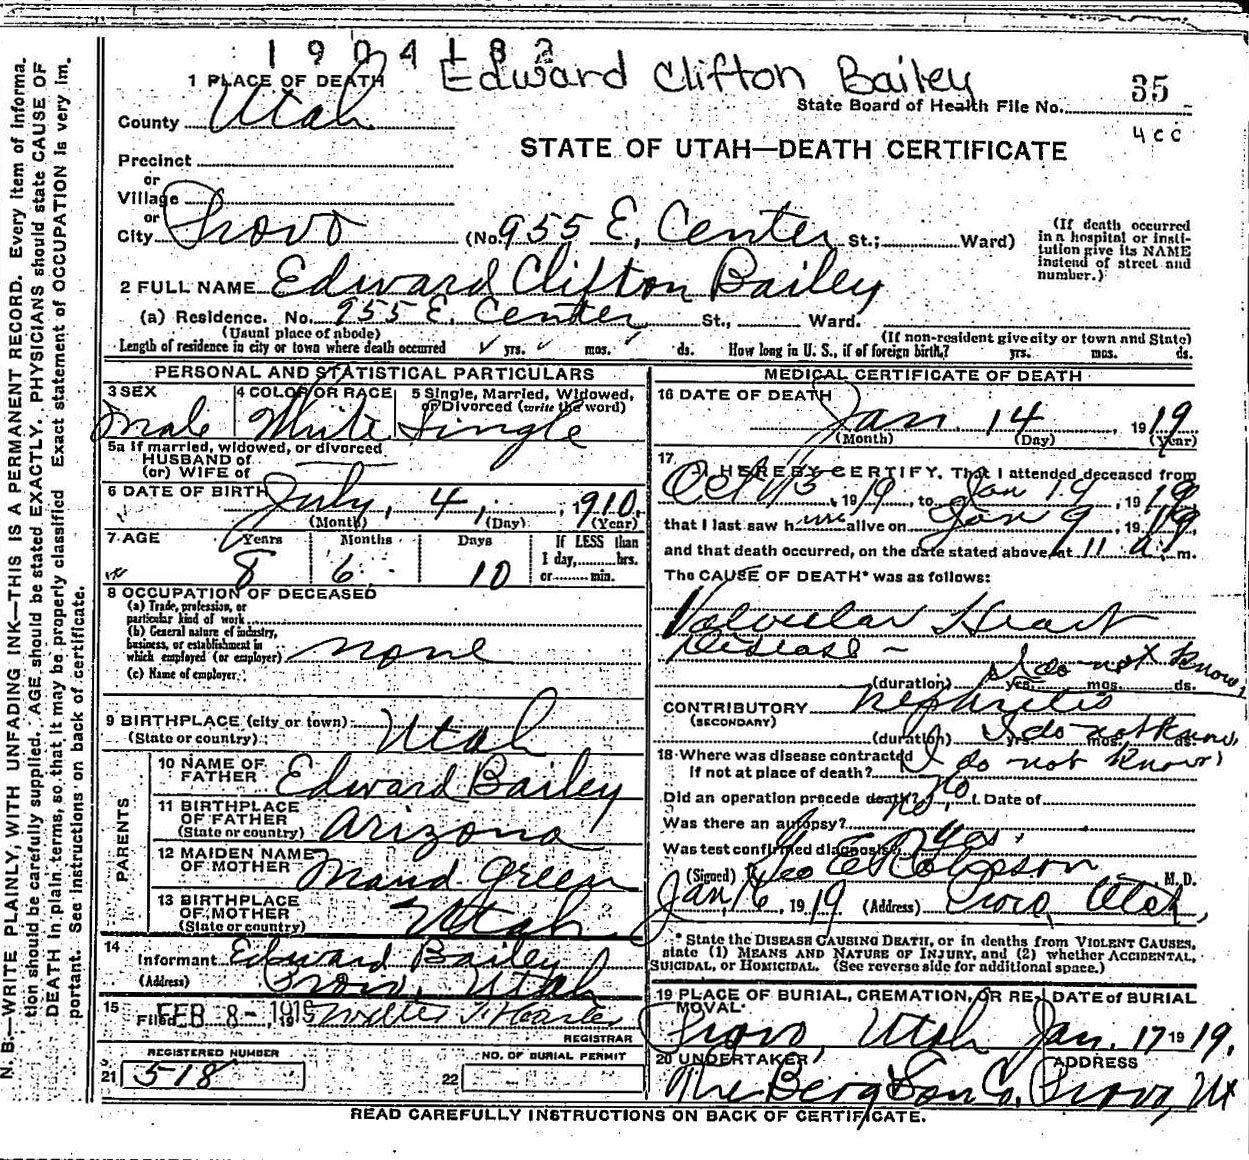 1904182
Edward Clifton Bailey
35
State Board of Health File No.
4cc
STATE OF UTAH—DEATH CERTIFICATE
1 PLACE OF DEATH
County Utah
Precinct
or
Village
or
City Provo (No. 955 E. Center St.; Ward)
(If death occurred in a hospital or insti-
tution give its NAME
instead of street and
number.)
2 FULL NAME Edward Clifton Bailey
(a) Residence. No. 955 E. Center St., Ward.
(Usual place of abode) (If non-resident give city or town and State)
Length of residence in city or town where death occurred yrs. mos. ds. How long in U. S., if of foreign birth? yrs. mos. ds.
PERSONAL AND STATISTICAL PARTICULARS
3 SEX 4 COLOR OR RACE 5 Single, Married, Widowed,
or Divorced (write the word)
Male White Single
5a If married, widowed, or divorced
HUSBAND of
(or) WIFE of
6 DATE OF BIRTH July 4, 1910
(Month) (Day) (Year)
7 AGE Years Months Days If LESS than
1 day, hrs.
or min.
8 6 10
8 OCCUPATION OF DECEASED
(a) Trade, profession, or
particular kind of work
(b) General nature of industry,
business, or establishment in
which employed (or employer) none
(c) Name of employer
9 BIRTHPLACE (city or town)
(State or country) Utah
PARENTS
10 NAME OF
FATHER Edward Bailey
11 BIRTHPLACE
OF FATHER
(State or country) Arizona
12 MAIDEN NAME
OF MOTHER Maud Green
13 BIRTHPLACE
OF MOTHER
(State or country) Utah
14
Informant Edward Bailey
(Address) Provo, Utah
15 Filed FEB 8-1919, 19
REGISTRAR
REGISTERED NUMBER NO. OF BURIAL PERMIT
21 518 22
MEDICAL CERTIFICATE OF DEATH
16 DATE OF DEATH
Jan. 14, 1919
(Month) (Day) (Year)
17
I HEREBY CERTIFY, That I attended deceased from
Oct 13, 1919, to Jan 14, 1919
that I last saw him alive on Jan 9, 1919
and that death occurred, on the date stated above, at 11 a. m.
The CAUSE OF DEATH* was as follows:
Valvular Heart
Disease —
I do not know
(duration) yrs. mos. ds.
CONTRIBUTORY Nephritis
(SECONDARY)
(duration) I do not know yrs. mos. ds.
18 Where was disease contracted
If not at place of death? I do not know
Did an operation precede death? No. Date of
Was there an autopsy? no
Was test confirmed diagnosis? yes.
(Signed) Geo E Robinson M. D.
Jan, 16, 1919 (Address) Provo, Utah,
* State the DISEASE CAUSING DEATH, or in deaths from VIOLENT CAUSES,
state (1) MEANS AND NATURE OF INJURY, and (2) whether ACCIDENTAL,
SUICIDAL, or HOMICIDAL. (See reverse side for additional space.)
19 PLACE OF BURIAL, CREMATION, OR RE-
MOVAL DATE of BURIAL
Provo, Utah Jan. 17 1919.
20 UNDERTAKER ADDRESS
The Berg Son Co. Provo, Ut
READ CAREFULLY INSTRUCTIONS ON BACK OF CERTIFICATE.
N. B.—WRITE PLAINLY, WITH UNFADING INK—THIS IS A PERMANENT RECORD. Every item of informa-
tion should be carefully supplied. AGE should be stated EXACTLY. PHYSICIANS should state CAUSE OF
DEATH in plain terms, so that it may be properly classified. Exact statement of OCCUPATION is very im-
portant. See instructions on back of certificate.